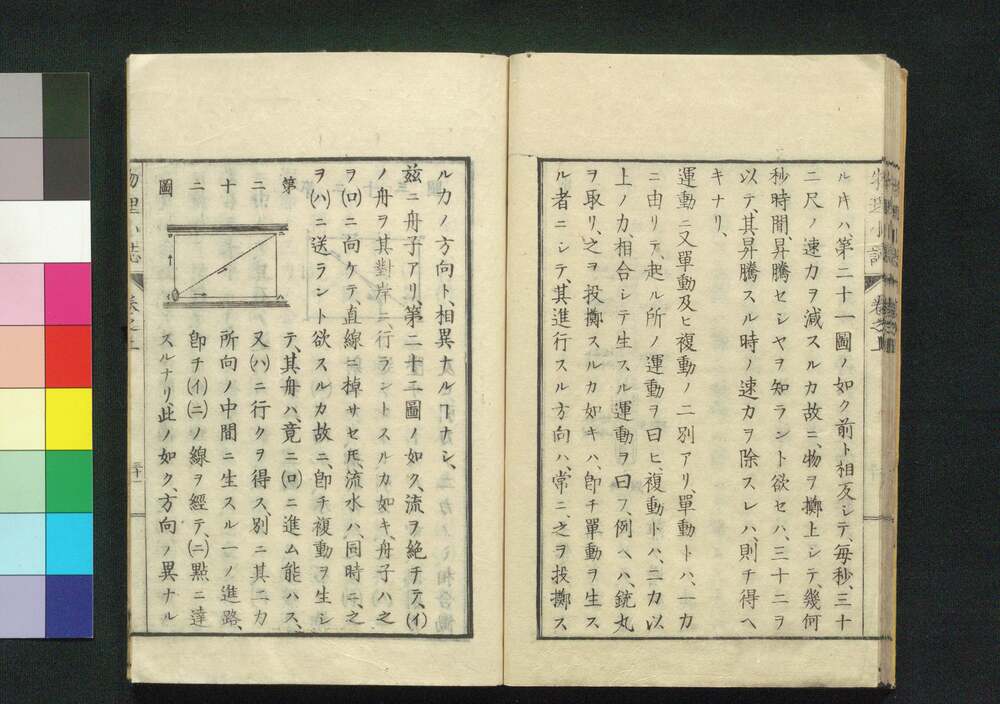 ルキハ第二十一圖ノ如ク前ト相反シテ、毎秒、三十
二尺ノ速力ヲ減スルカ故ニ、物ヲ擲上シテ、幾何
秒時間、昇騰セシヤヲ知ラント欲セハ、三十二ヲ
以テ、其昇騰スル時ノ速力ヲ除スレハ、則チ得ヘ
キナリ、
運動ニ又單動及ヒ複動ノ二別アリ、單動トハ、一力
ニ由リテ、起ル所ノ運動ヲ曰ヒ、複動トハ、二力以
上ノ力、相合シテ生スル運動ヲ曰フ、例ヘハ、銃丸
ヲ取リ、之ヲ投擲スルカ如キハ、卽チ單動ヲ生ス
ル者ニシテ、其進行スル方向ハ、常ニ、之ヲ投擲ス
ル力ノ方向ト、相異ナルヿナシ、
玆ニ舟子アリ、第二十二圖ノ如ク、流ヲ絶チテ、(イ)
ノ舟ヲ其對岸ニ、行ラントスルカ如キ、舟子ハ之
ヲ(ロ)ニ向ケテ、直線ニ棹サセ𪜈、流水ハ、同時ニ、之
ヲ(ハ)ニ送ラント欲スルカ故ニ、卽チ複動ヲ生シ
テ、其舟ハ、竟ニ(ロ)ニ進ム能ハス、
又(ハ)ニ行クヲ得ス、別ニ其二力
所向ノ中間ニ生スル一ノ進路、
卽チ(イ)(ニ)ノ線ヲ經テ、(ニ)點ニ達
スルナリ、此ノ如ク、方向ノ異ナル
第
二
十
二
圖
物理小誌
卷之上